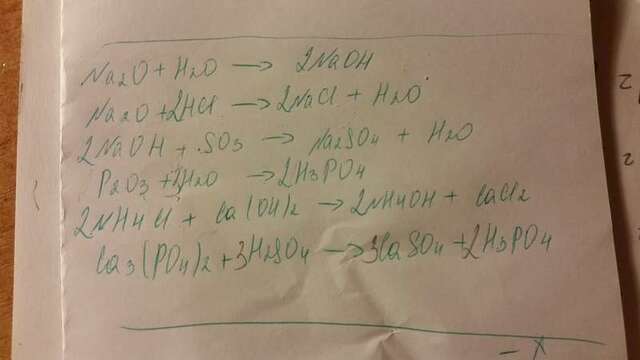 Na2O + H2O → 2NaOH
Na2O + 2HCl → 2NaCl + H2O
2NaOH + SO3 → Na2SO4 + H2O
P2O3 + 3H2O → 2H3PO4
2NH4Cl + Ca(OH)2 → 2NH4OH + CaCl2
Ca3(PO4)2 + 3H2SO4 → 3CaSO4 + 2H3PO4